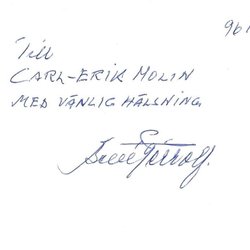 961
Till
CARL-ERIK MOLIN
MED VÄNLIG HÄLSNING